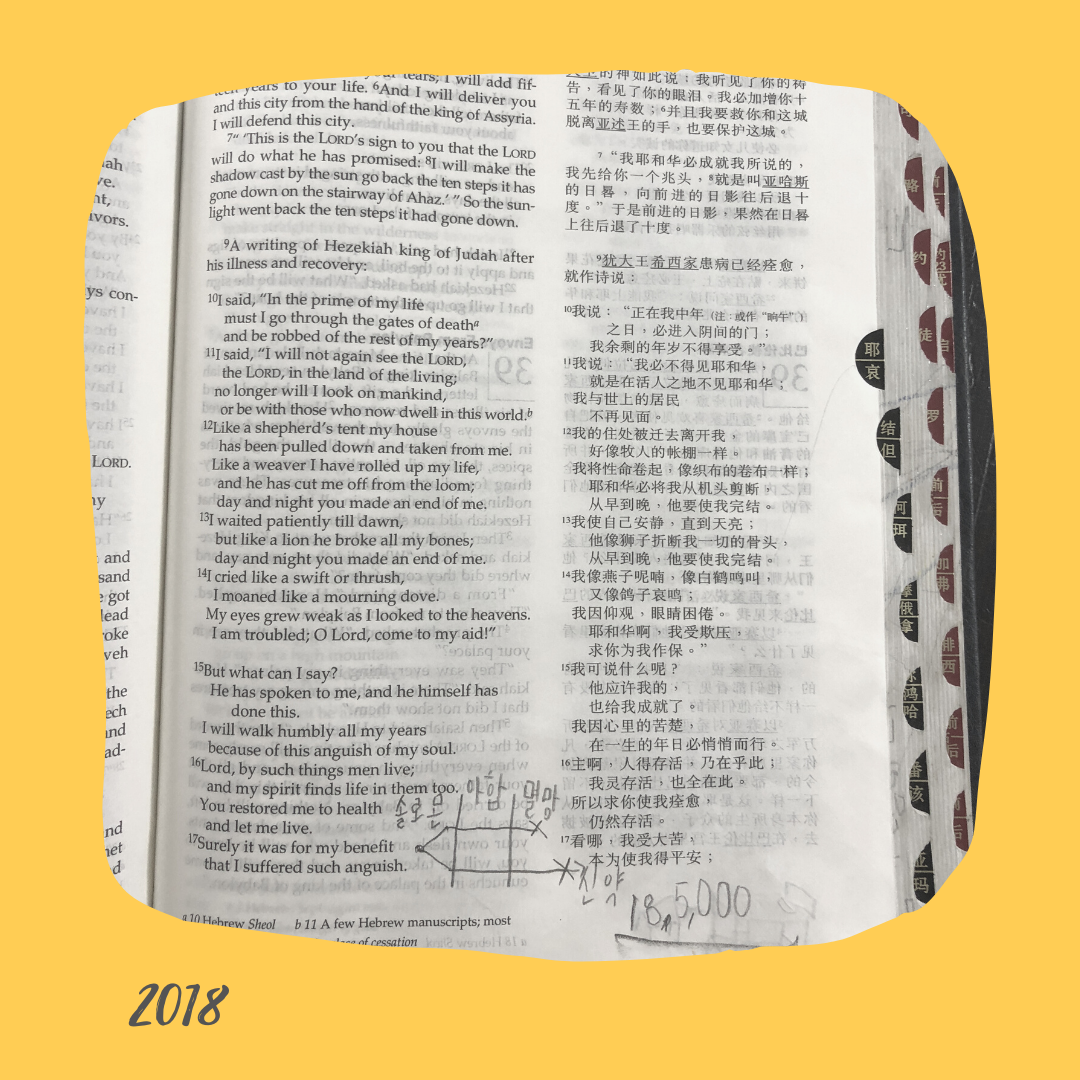 your tears; I will add fif-
teen years to your life. ⁶And I will deliver you
and this city from the hand of the king of Assyria.
I will defend this city.
⁷“ ‘This is the LORD’s sign to you that the LORD
will do what he has promised: ⁸I will make the
shadow cast by the sun go back the ten steps it has
gone down on the stairway of Ahaz.’ ” So the sun-
light went back the ten steps it had gone down.
⁹A writing of Hezekiah king of Judah after
his illness and recovery:
¹⁰I said, “In the prime of my life
must I go through the gates of deathᵃ
and be robbed of the rest of my years?”
¹¹I said, “I will not again see the LORD,
the LORD, in the land of the living;
no longer will I look on mankind,
or be with those who now dwell in this world.ᵇ
¹²Like a shepherd’s tent my house
has been pulled down and taken from me.
Like a weaver I have rolled up my life,
and he has cut me off from the loom;
day and night you made an end of me.
¹³I waited patiently till dawn,
but like a lion he broke all my bones;
day and night you made an end of me.
¹⁴I cried like a swift or thrush,
I moaned like a mourning dove.
My eyes grew weak as I looked to the heavens.
I am troubled; O Lord, come to my aid!”
¹⁵But what can I say?
He has spoken to me, and he himself has
done this.
I will walk humbly all my years
because of this anguish of my soul.
¹⁶Lord, by such things men live;
and my spirit finds life in them too.
You restored me to health
and let me live.
¹⁷Surely it was for my benefit
that I suffered such anguish.
ᵃ 10 Hebrew Sheol b 11 A few Hebrew manuscripts; most
of cessation
的神如此说：我听见了你的祷
告，看见了你的眼泪。我必加增你十
五年的寿数；⁶并且我要救你和这城
脱离亚述王的手，也要保护这城。
⁷“我耶和华必成就我所说的，
我先给你一个兆头，⁸就是叫亚哈斯
的日晷，向前进的日影往后退十
度。”于是前进的日影，果然在日晷
上往后退了十度。
⁹犹大王希西家患病已经痊愈，
就作诗说：
¹⁰我说：“正在我中年（注：或作“晌午”）
之日，必进入阴间的门；
我余剩的年岁不得享受。”
¹¹我说：“我必不得见耶和华，
就是在活人之地不见耶和华；
我与世上的居民
不再见面。
¹²我的住处被迁去离开我，
好像牧人的帐棚一样。
我将性命卷起，像织布的卷布一样；
耶和华必将我从机头剪断，
从早到晚，他要使我完结。
¹³我使自己安静，直到天亮；
他像狮子折断我一切的骨头，
从早到晚，他要使我完结。
¹⁴我像燕子呢喃，像白鹤鸣叫，
又像鸽子哀鸣；
我因仰观，眼睛困倦。
耶和华啊，我受欺压，
求你为我作保。”
¹⁵我可说什么呢？
他应许我的，
也给我成就了。
我因心里的苦楚，
在一生的年日必悄悄而行。
¹⁶主啊，人得存活，乃在乎此；
我灵存活，也全在此。
所以求你使我痊愈，
仍然存活。
¹⁷看哪，我受大苦，
本为使我得平安；
솔로몬 아합 멸망
185,000
耶
哀
结
但
何
珥
俄
拿
鸿
哈
番
该
亚
玛
路
约
徒
罗
加
弗
西
ys con-
LORD.
and
sand
got
the
2018